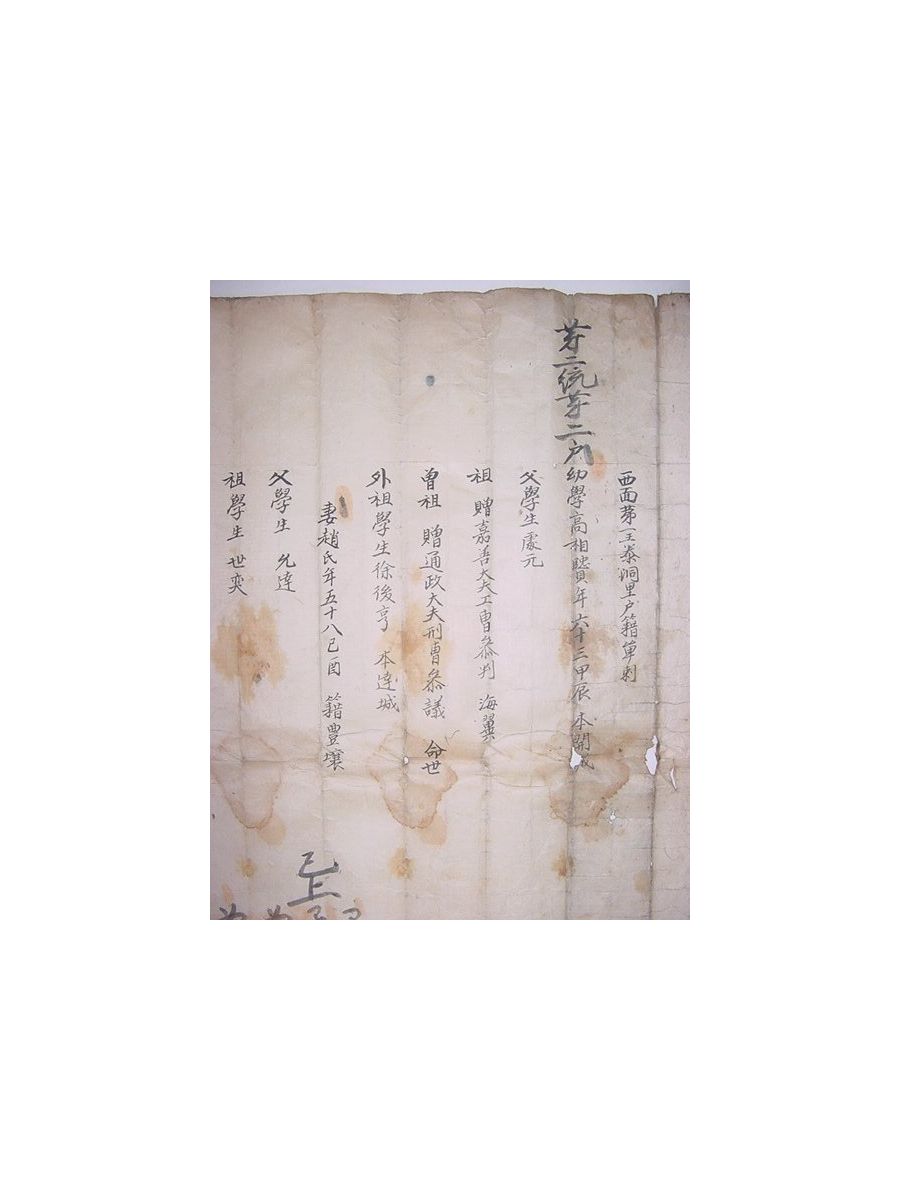 西面第一王泰洞里戶籍單刺
第二統第二戶 幼學高相贇年六十三甲辰 本開城
父學生處元
祖 贈嘉善大夫工曹叅判 海翼
曾祖 贈通政大夫刑曹叅議 命世
外祖學生徐後亨 本達城
妻趙氏年五十八己酉 籍豊壤
父學生 允達
祖學生 世奕
已上